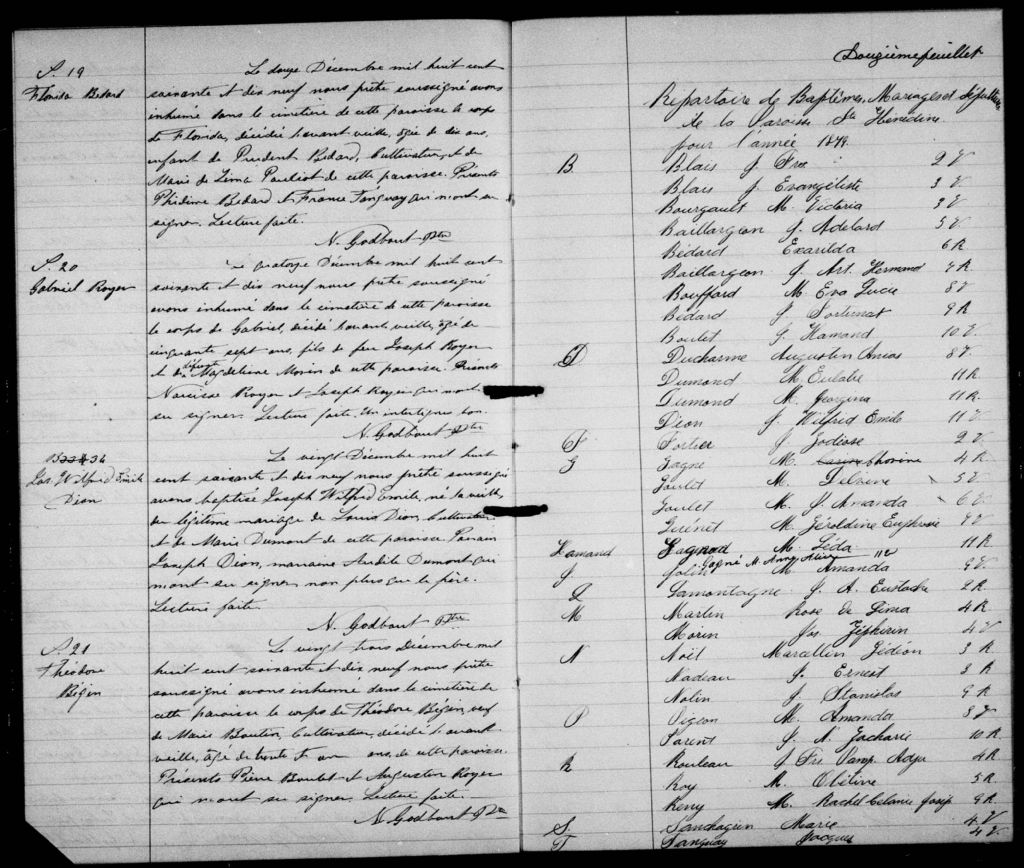 S. 19
Florida Bédard
Le douze Décembre mil huit cent
soixante et dix neuf nous prêtre soussigné avons
inhumé dans le cimetière de cette paroisse le corps
de Florida, décédé l'avant veille, âgée de dix ans,
enfant de Prudent Bédard, Cultivateur, et de
Marie de Lima Pouliot de cette paroisse. Présents
Phidime Bédard et France Tanguay qui n'ont su
signer. Lecture faite.
N. Godbout Ptre
S. 20
Gabriel Royer
Le quatorze Décembre mil huit cent
soixante et dix neuf nous prêtre soussigné
avons inhumé dans le cimetière de cette paroisse
le corps de Gabriel, décédé l'avant veille, âgé de
cinquante sept ans, fils de feu Joseph Royer
et de défunte Magdeleine Morin de cette paroisse. Présents
Narcisse Royer et Joseph Royer qui n'ont
su signer. Lecture faite. Un interligne bon.
N. Godbout Ptre
36
Jos. Wilfrid Emile
Dion
Le vingt Décembre mil huit
cent soixante et dix neuf nous prêtre soussigné
avons baptisé Joseph Wilfrid Emile, né la veille,
du légitime mariage de Louis Dion, Cultivateur
et de Marie Dumont de cette paroisse. Parrain
Joseph Dion, marraine Dumont qui
n'ont su signer non plus que le père.
Lecture faite.
N. Godbout Ptre
S. 21
Théodore
Bégin
Le vingt trois Décembre mil
huit cent soixante et dix neuf nous prêtre
soussigné avons inhumé dans le cimetière de
cette paroisse le corps de Théodore Bégin, veuf
de Marie Boutin, Cultivateur, décédé l'avant
veille, âgé de ans de cette paroisse.
Présents Pierre Boulet et Augustin Royer
qui n'ont su signer. Lecture faite.
N. Godbout Ptre
Douzième feuillet
Répertoire de Baptêmes, Mariages et Sépultures
de la Paroisse Ste Hénédine
pour l'année 1879.
B Blais J. Frs 2 V
Blais J. Evangéliste 3 V
Bourgault M. Victoria 3 V
Baillargeon J. Adelard 5 V
Bédard Exarilda 6 R
Baillargeon J. Art. Hermond 7 R
Bouffard M. Eva Lucie 8 V
Bédard J. Fortunat 9 R
Boulet G. Hamond 10 V
D Ducharme Augustin Anias 8 V
Dumond M. Eulalie 11 R
Dumond M. Georgina 11 R
Dion J. Wilfrid Emile 11 V
F Fortier J. Jodiose 2 V
G Gagné M. 4 R
Goulet M. Delvene 5 V
Goulet M. J. Amanda 6 V
Guénet M. Géroldine Euphrosie 9 V
Hamand M. Léda 11 R
Gagné M. Anny Alvina 11 V
J Jolin M. Amanda 9 V
L Lamontagne J. A. Eustache 2 R
M Martin Rose de Lima 4 R
Morin Jos Zéphirin 4 V
N Noël Marcellin Gédéon 3 R
Nadeau J. Ernest 3 R
Nolin J. Stanislas 9 R
P Pigeon M. Amanda 8 V
Parent J. N. Zacharie 10 R
R Rouleau J. Frs 4 R
Roy M. Obéline 5 R
Remy M. Rachel Celanie 9 R
S Sandagin Marie 4 V
T Tanguay Jacques 4 V